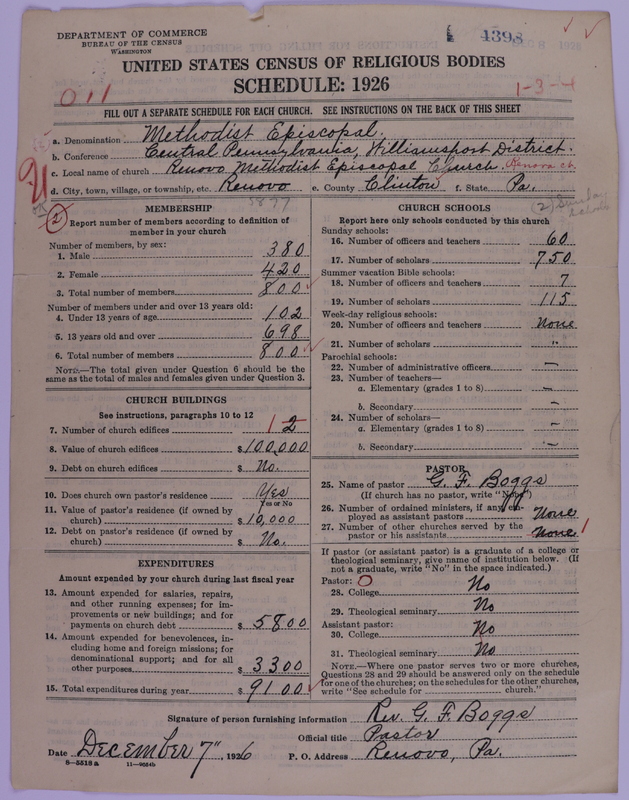 DEPARTMENT OF COMMERCE
BUREAU OF THE CENSUS
WASHINGTON
4398
UNITED STATES CENSUS OF RELIGIOUS BODIES
SCHEDULE: 1926
1-3-4
011
FILL OUT A SEPARATE SCHEDULE FOR EACH CHURCH. SEE INSTRUCTIONS ON THE BACK OF THIS SHEET
a. Denomination Methodist Episcopal.
b. Conference Central Pennsylvania, Williamsport District.
c. Local name of church Renovo Methodist Episcopal Church. Renovo ch.
d. City, town, village, or township, etc. Renovo e. County Clinton f. State Pa.
5877
(2) Sunday schools
MEMBERSHIP
2
Report number of members according to definition of member in your church
Number of members, by sex:
1. Male 380
2. Female 420
3. Total number of members 800
Number of members under and over 13 years old:
4. Under 13 years of age 102
5. 13 years old and over 698
6. Total number of members 800
NOTE.—The total given under Question 6 should be the same as the total of males and females given under Question 3.
CHURCH BUILDINGS
See instructions, paragraphs 10 to 12
7. Number of church edifices 1 2
8. Value of church edifices $100,000
9. Debt on church edifices $ No.
10. Does church own pastor's residence Yes
Yes or No
11. Value of pastor's residence (if owned by
church) $10,000
12. Debt on pastor's residence (if owned by
church) $ No.
EXPENDITURES
Amount expended by your church during last fiscal year
13. Amount expended for salaries, repairs,
and other running expenses; for im-
provements or new buildings; and for
payments on church debt $5800
14. Amount expended for benevolences, in-
cluding home and foreign missions; for
denominational support; and for all
other purposes $3300
15. Total expenditures during year $9100
CHURCH SCHOOLS
Report here only schools conducted by this church
Sunday schools:
16. Number of officers and teachers 60
17. Number of scholars 750
Summer vacation Bible schools:
18. Number of officers and teachers 7
19. Number of scholars 115
Week-day religious schools:
20. Number of officers and teachers None
21. Number of scholars "
Parochial schools:
22. Number of administrative officers —
23. Number of teachers—
a. Elementary (grades 1 to 8) —
b. Secondary —
24. Number of scholars—
a. Elementary (grades 1 to 8) —
b. Secondary —
PASTOR
25. Name of pastor G. F. Boggs
(If church has no pastor, write "None")
26. Number of ordained ministers, if any, em-
ployed as assistant pastors None
27. Number of other churches served by the
pastor or his assistants None 1
If pastor (or assistant pastor) is a graduate of a college or
theological seminary, give name of institution below. (If
not a graduate, write "No" in the space indicated.)
Pastor: 0
28. College No
29. Theological seminary No
Assistant pastor:
30. College No
31. Theological seminary No
NOTE.—Where one pastor serves two or more churches,
Questions 28 and 29 should be answered only on the schedule
for one of the churches; on the schedules for the other churches,
write "See schedule for church."
Signature of person furnishing information Rev. G. F. Boggs
Official title Pastor
Date December 7", 1926 P. O. Address Renovo, Pa.
8—5518a 11—9054b